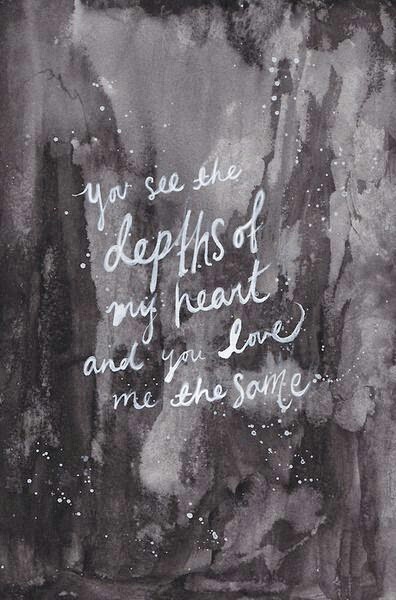 you see the
depths of
my heart
and you love
me the same